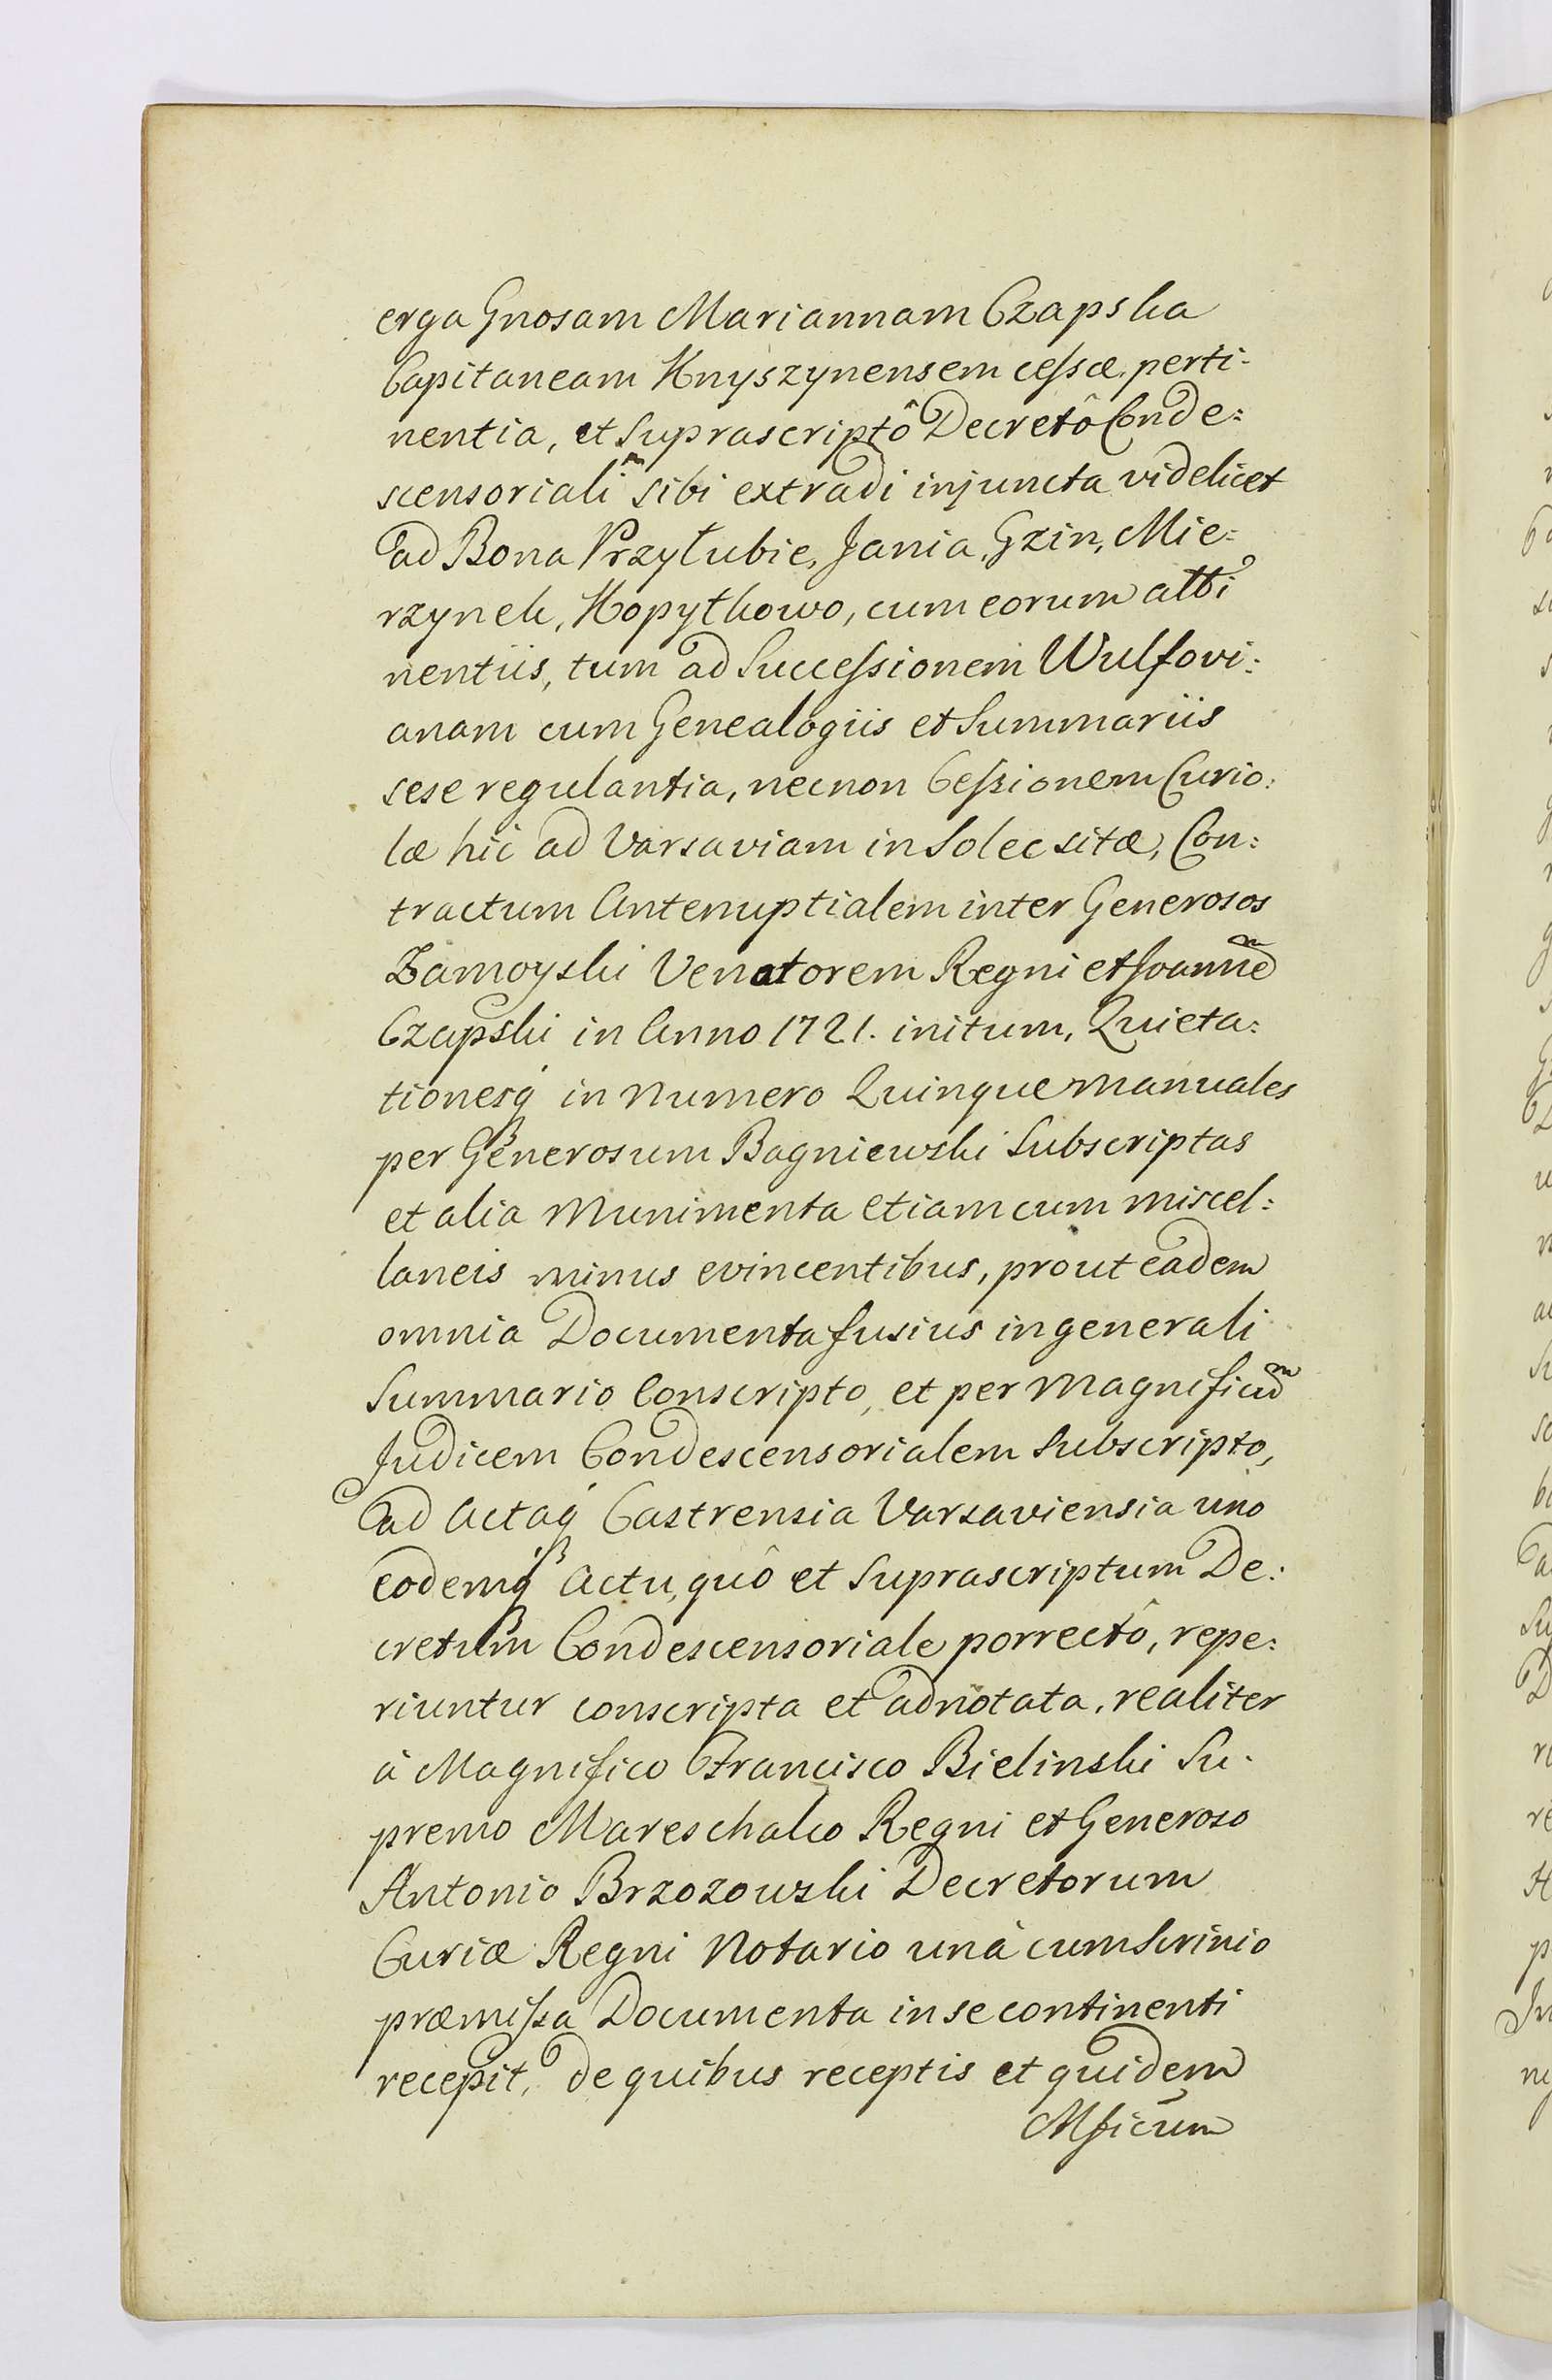 erga Gnosam Mariannam Czapska
Capitaneam Knyszynensem cessæ, perti=
nentia, et Suprascriptô Decretô Conde=
scensoriali sibi extradi injuncta videlicet
ad Bona Przyłubie, Jania, Gzin, Mie=
rzynek, Kopytkowo, cum eorum atti
nentiis, tum ad Successionem Wulfovi=
anam cum Genealogiis et Summariis
sese regulantia, necnon Cessionem Curio=
læ hic ad Varsaviam in Solec sitæ, Con=
tractum Antenuptialem inter Generosos
Zamoyski Venatorem Regni et Joannem
Czapski in Anno 1721. initum, Quieta=
tionesq́ in Numero Quinque manuales
per Generosum Bagniewski Subscriptas
et alia Munimenta etiam cum miscel=
laneis minus evincentibus, prout eadem
omnia Documenta fusius in generali
Summario Conscripto, et per Magnificum
Judicem Condescensorialem Subscripto,
ad Actaq́ Castrensia Varsaviensia uno
eodemq́ Actu, quô et Suprascriptum De=
cretum Condescensoriale porrectô, repe=
riuntur conscripta et adnotata, realiter
à Magnifico Francisco Bielinski Su=
premo Mareschalco Regni et Generoso
Antonio Brzozowski Decretorum
Curiæ Regni Notario unà cum Scrinio
præmissa Documenta in se continenti
recepit, de quibus receptis et quidem
Mficum